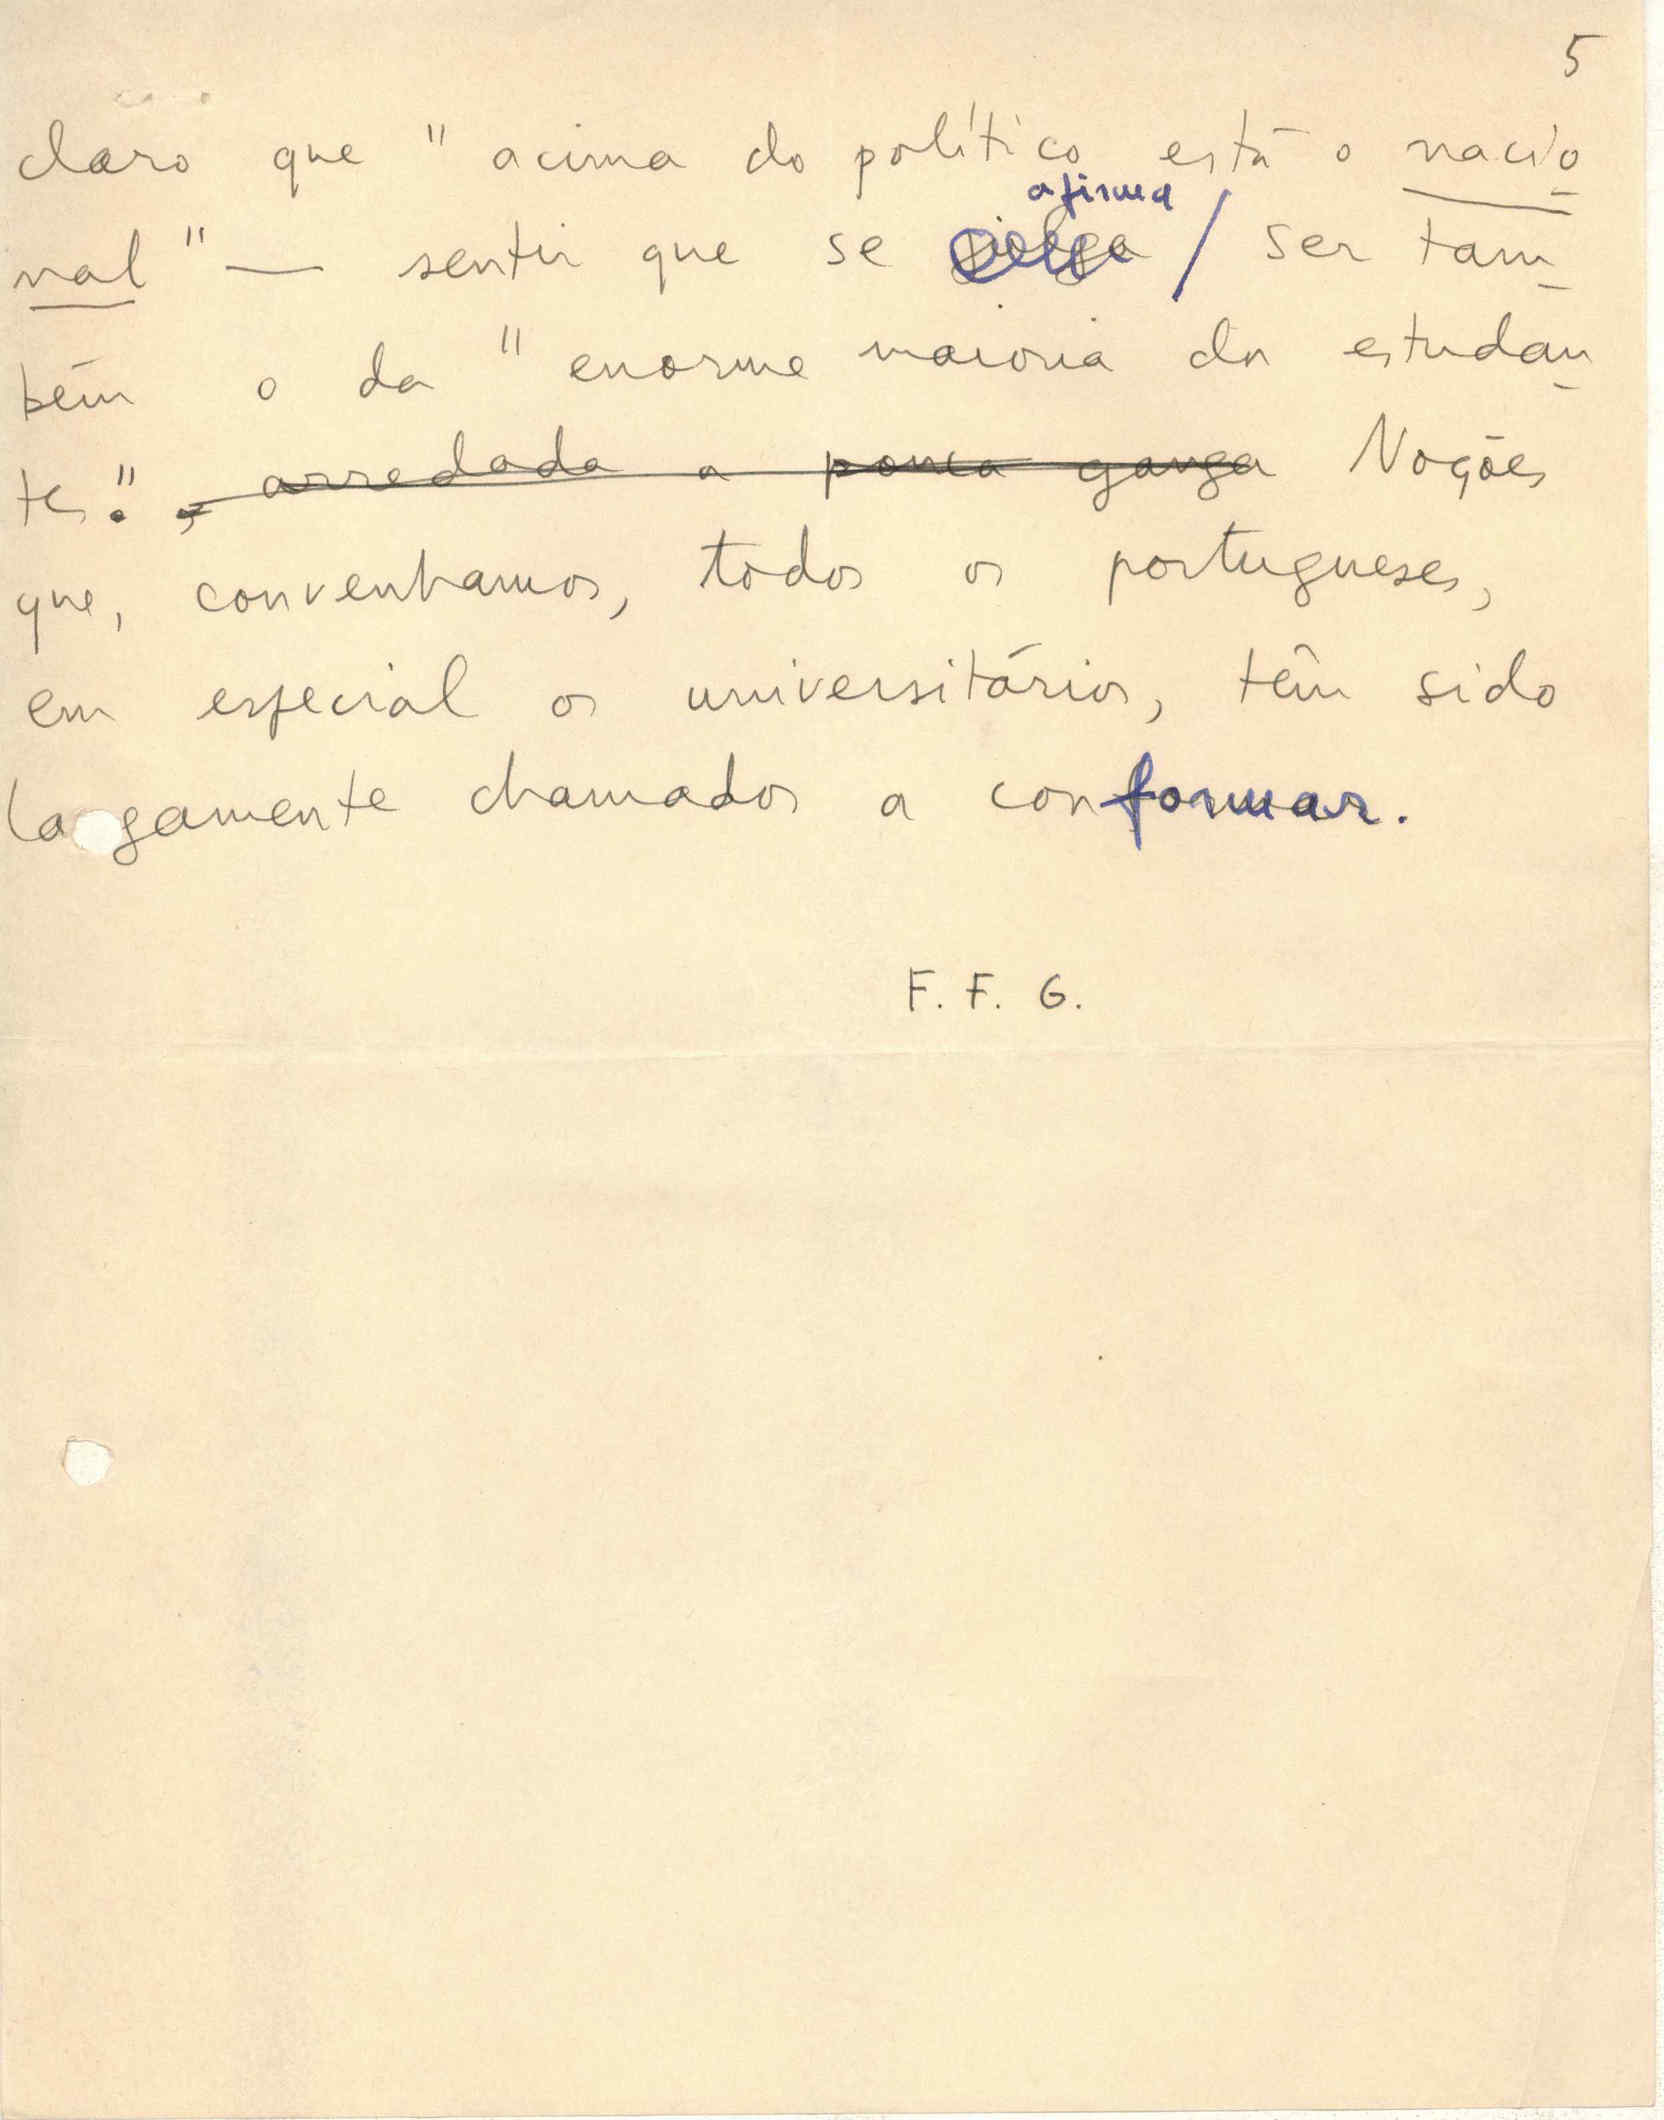 5
claro que "acima do político está o nacio
afirma
nal" — sentir que se julga / ser tam
bém o da "enorme maioria dos estudan
tes". , arredada a pouca ganga Noções
que, convenhamos, todos os portugueses,
em especial os universitários, têm sido
largamente chamados a conformar.
F. F. G.